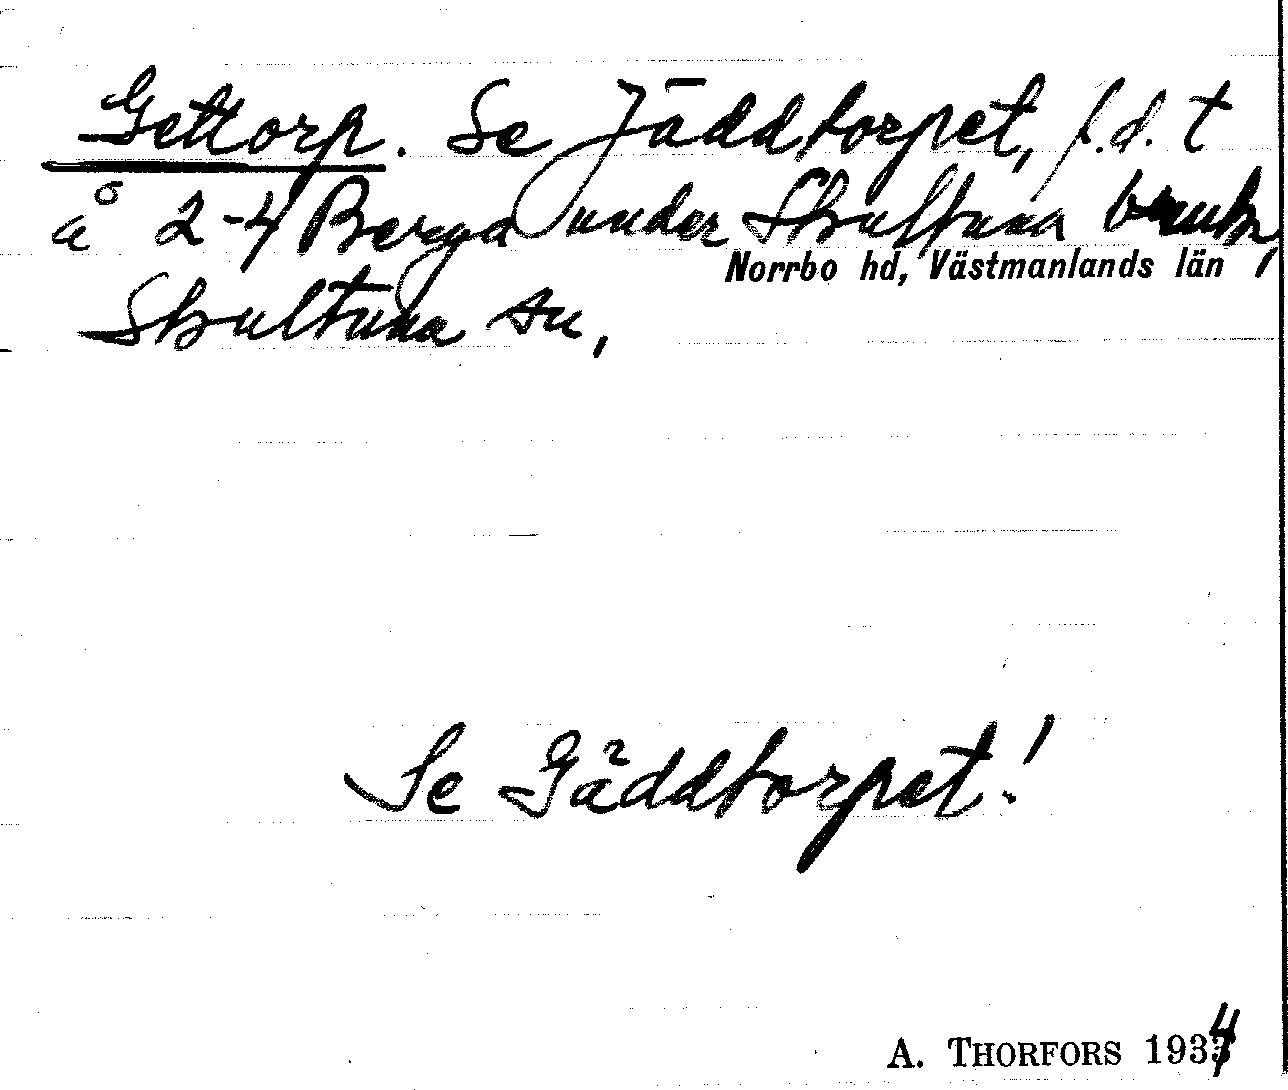 Gettorp. Se Jäddtorpet, f.d. t
å 2-4 Berga under Skultuna bruk,
Norrbo hd, Västmanlands län
Skultuna sn,
Se Gäddtorpet!
A. THORFORS 1934